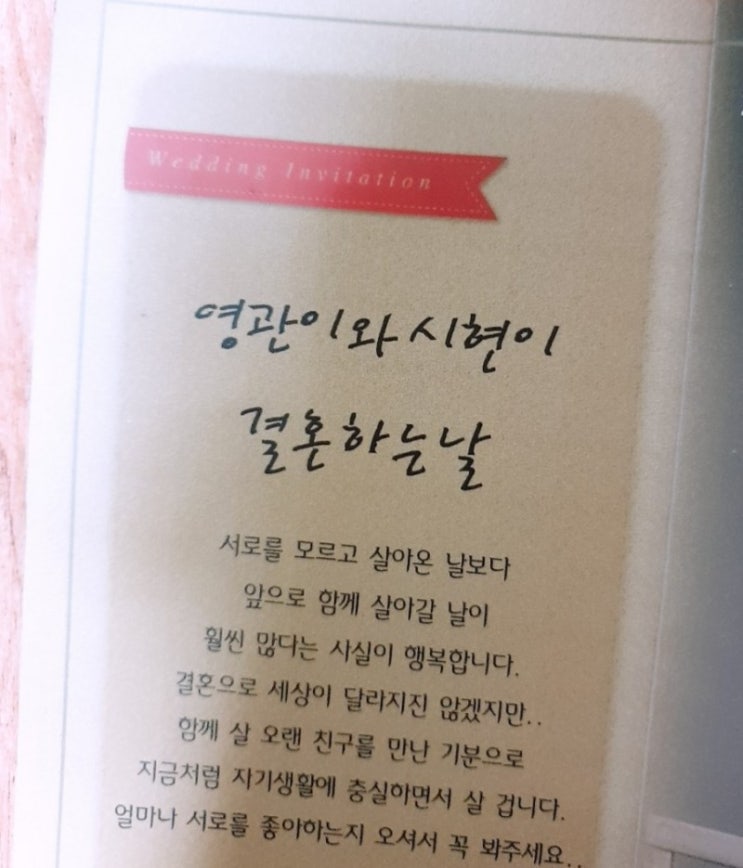 Wedding Invitation
영관이와 시현이
결혼하는날
서로를 모르고 살아온 날보다
앞으로 함께 살아갈 날이
훨씬 많다는 사실이 행복합니다.
결혼으로 세상이 달라지진 않겠지만..
함께 살 오랜 친구를 만난 기분으로
지금처럼 자기생활에 충실하면서 살 겁니다.
얼마나 서로를 좋아하는지 오셔서 꼭 봐주세요..